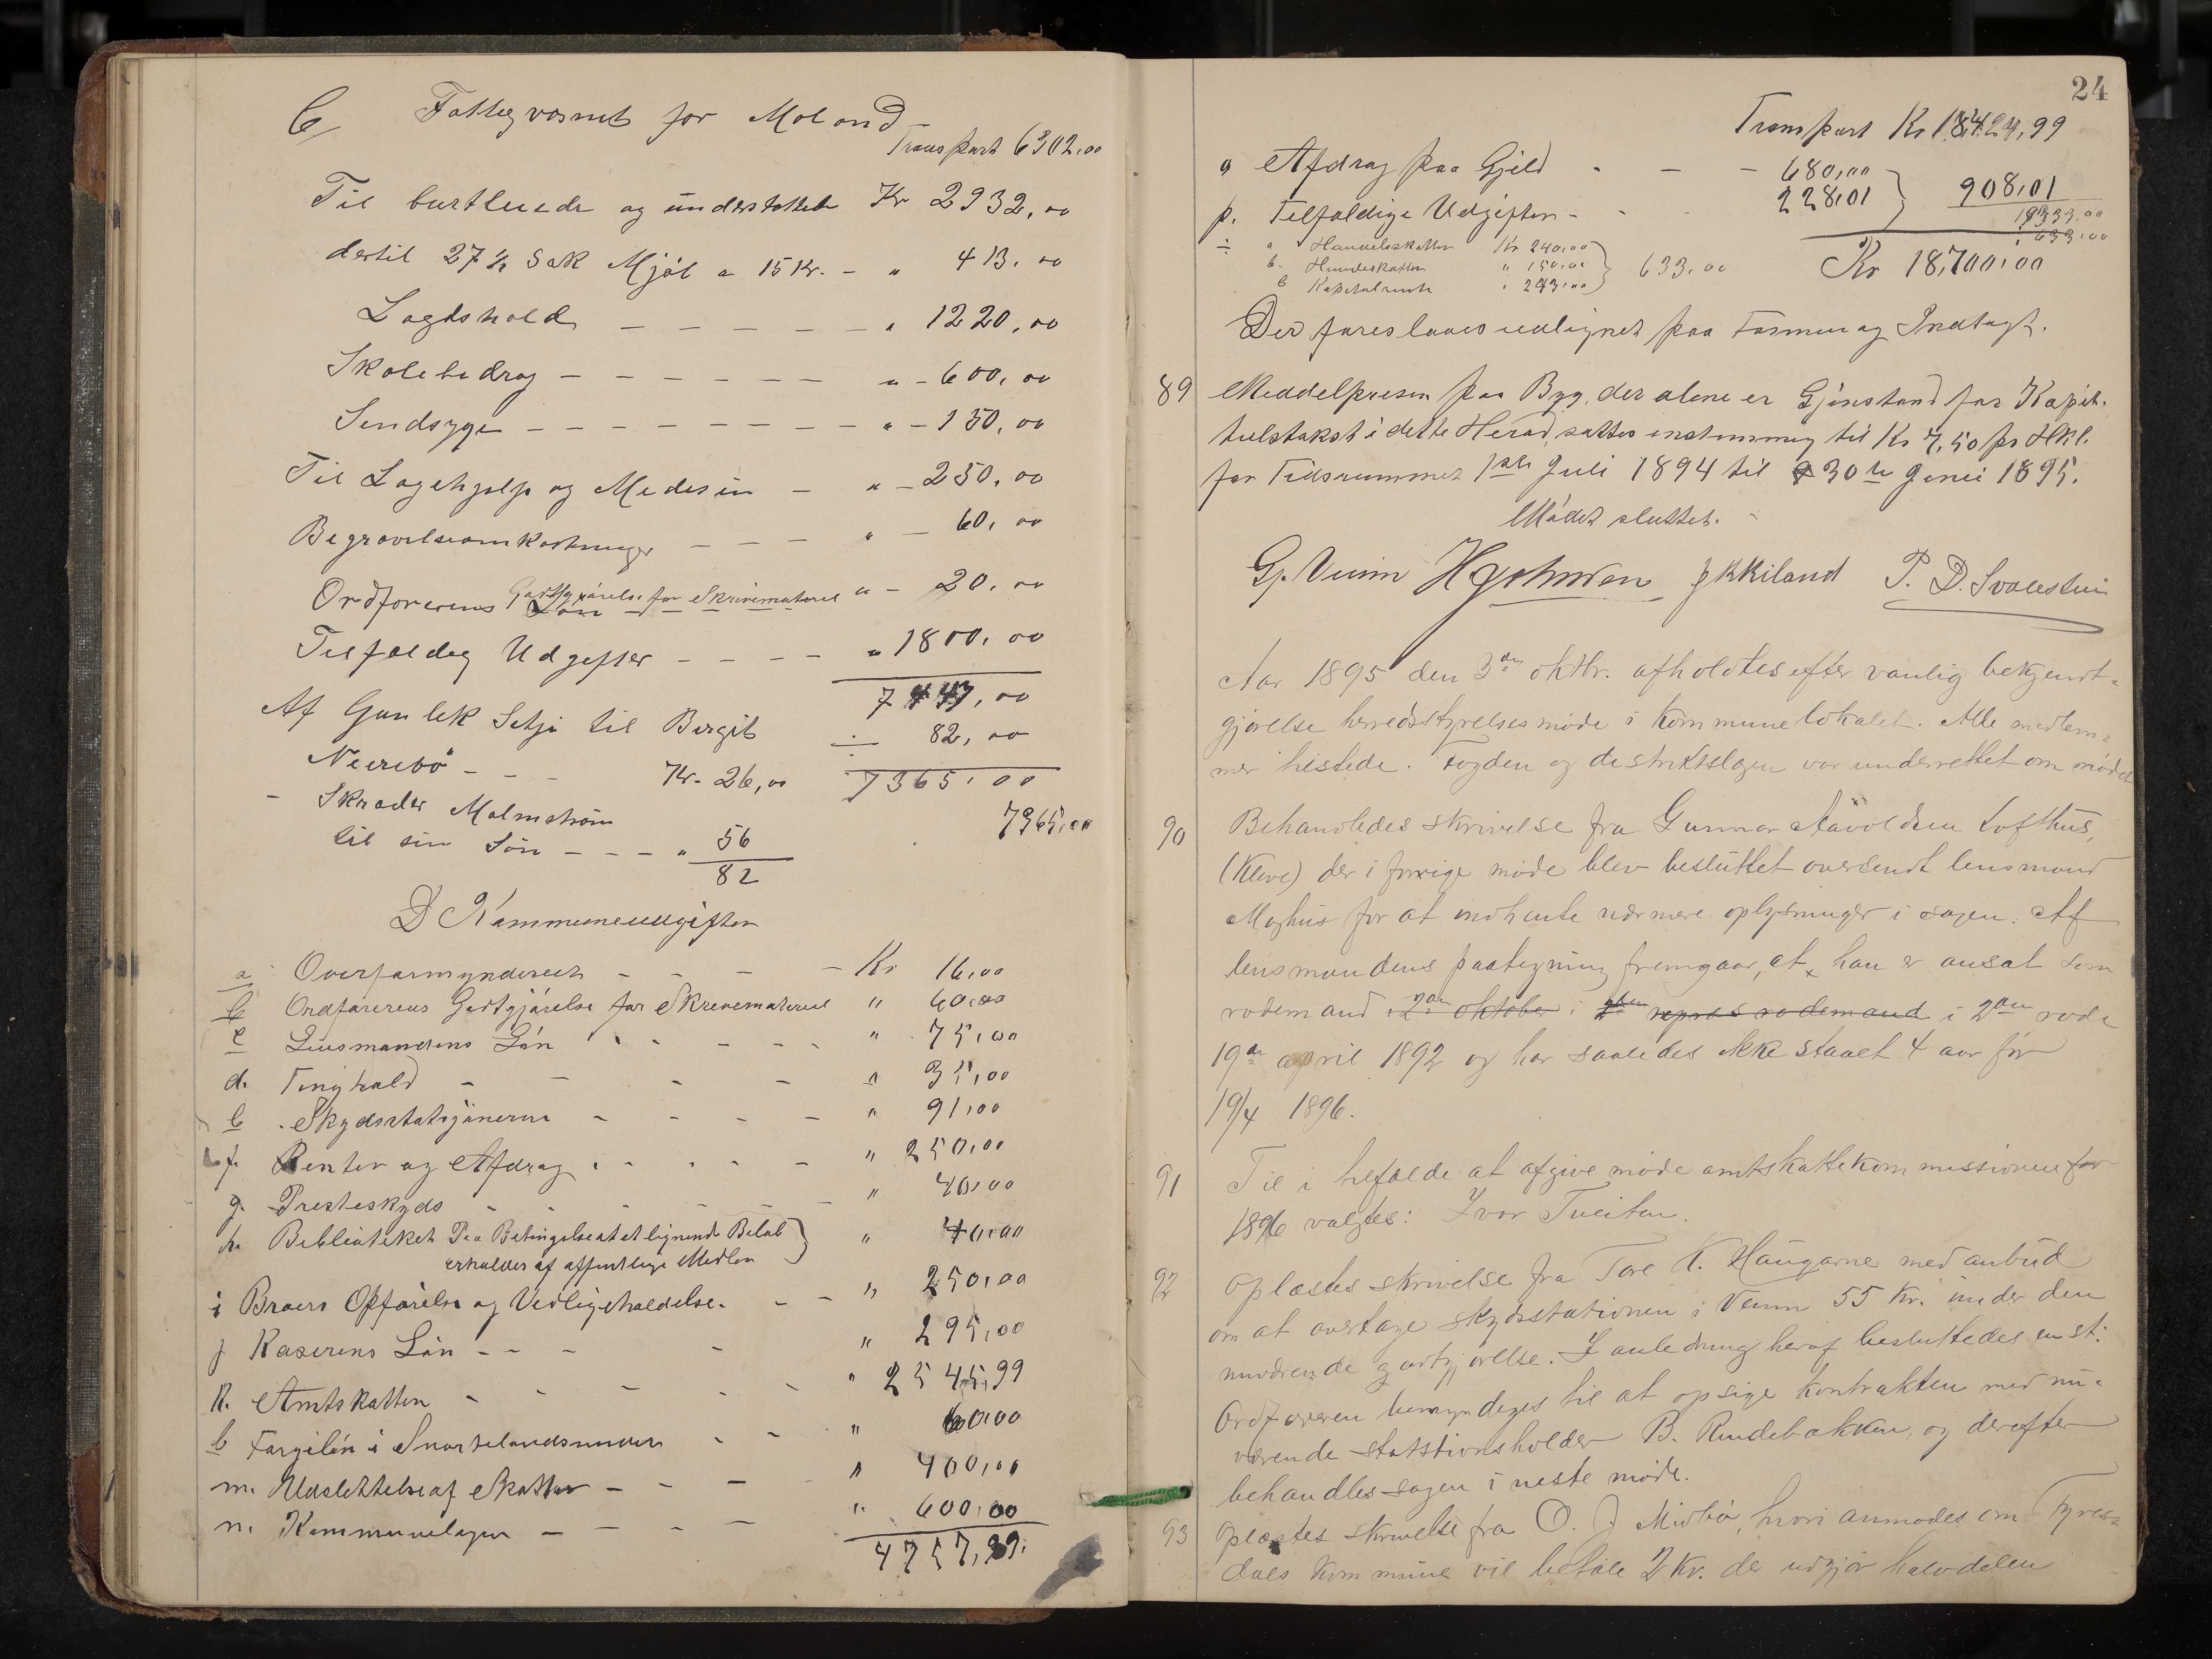 C Fattigvæsnet for Moland
Transport 6302,00
Til bortleiede og understøttede Kr 2932,00
dertil 27½ Sæk Mjøl a 15 Kr. - " 413,00
Lægdshold - - - - - " 1220,00
Skolebidrag - - - - - - " - 600,00
Sindsyge - - - - - - - - " - 150,00
Til Lægehjælp og Medesin - " - 250,00
Begravelsesomkostninger - - - " - 60,00
Ordførerens Godtgjørelse for Skrivemateriel " - 20,00
Tilfældig Udgifter - - - - " 1800,00
7447,00
Af Gunlek Setje til Birgit ÷ 82,00
Neirebö - - - Kr. 26,00 7365,00
- Skræder Malmstrøm 7365,00
til sin Søn - - - " 56
82
D Kommuneudgifter
a Overformynderiet - - - - Kr 16,00
b Ordførerens Godtgjørelse for Skrivemateriel " 60,00
c Lensmandens Løn " 75,00
d. Tinghold - - - - " 35,00
e. Skydsstatsjonerne - - - - " 91,00
f. Renter og Afdrag " 250,00
g. Presteskyds - - - - " 40,00
h. Biblioteket Paa Betingelse at et lignende Beløb " 40,00
erholdes af offentlige Midler
i Broers Opførelse og Vedligeholdelse. - - " 250,00
j Kaserens Løn - - - - " 295,00
k. Amtskatten - - - - - " 2545,99
l Færgeløn i - - " 60,00
m. Udslettelse af Skatter - - - " 400,00
n. Kommunelægen - - - - " 600,00
4757,99
24
Transport Kr 18,424,99
o Afdrag paa Gjeld - - - 680,00
p. Tilfældige Udgifter - - 228,01 908,01
19333,00
÷ a Handelsskatten Kr 240,00 633,00
b. Hundeskatten " 150,00 633,00 Kr 18,700,00
c Kapitalrente " 243,00
Der foreslaaes udlignet paa Formue og Indtægt.
89 Middelprisen paa Byg, der alene er Gjenstand for Kapit-
tulstakst i dette Herad, sattes enstemmig til Kr 7,50 pr Hkl.
for Tidsrummet 1ste Juli 1894 til 30te Juni 1895.
Mødet sluttet. -
G. Veum H Johnsen J K Kiland P. D. Svalestuen
Aar 1895 den 3die oktbr. afholdtes efter vanlig bekjendt-
gjørelse herredsstyrelsesmøde i kommunelokalet. Alle medlem-
mer tilstede. Fogden og distriktslægen var underrettet om mødet
90 Behandledes skrivelse fra Gunnar Aavoldsen Lofthus,
(Kleve) der i forrige møde blev besluttet oversendt lensmand
Moghus for at indhente nærmere oplysninger i sagen. Af
lensmandens paategning fremgaar, at han er ansat som
rodemand i 2den oktober i 2den repræs rodemand i 2den rode
19de april 1892 og har saaledes ikke staaet 4 aar før
19/4 1896.
91 Til i tilfælde at afgive møde amtskattekommissionen for
1896 valgtes: Ivar Tveiten.
92 Oplæstes skrivelse fra Tore K. Haugarne med anbud
om at overtage skydsstationen i Veum 55 Kr. under den
nuværende godtgjørelse. I anledning heraf besluttedes enst:
Ordføreren bemyndiges til at opsige kontrakten med nu-
værende statstionsholder B. Rindebakken, og derefter
behandles sagen i neste møde.
93 Oplæstes skrivelse fra O. J Midbø, hvori anmodes om Fyres-
dals kommune vil betale 2 Kr. der udgjør halvdelen